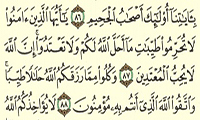 بِـَٔايَـٰتِنَآ أُو۟لَـٰٓئِكَ أَصْحَـٰبُ ٱلْجَحِيمِ ٨٦ يَـٰٓأَيُّهَا ٱلَّذِينَ ءَامَنُوا۟
لَا تُحَرِّمُوا۟ طَيِّبَـٰتِ مَآ أَحَلَّ ٱللَّهُ لَكُمْ وَلَا تَعْتَدُوٓا۟ إِنَّ ٱللَّهَ
لَا يُحِبُّ ٱلْمُعْتَدِينَ ٨٧ وَكُلُوا۟ مِمَّا رَزَقَكُمُ ٱللَّهُ حَلَـٰلًا طَيِّبًا
وَٱتَّقُوا۟ ٱللَّهَ ٱلَّذِىٓ أَنتُم بِهِۦ مُؤْمِنُونَ ٨٨ لَا يُؤَاخِذُكُمُ ٱللَّهُ